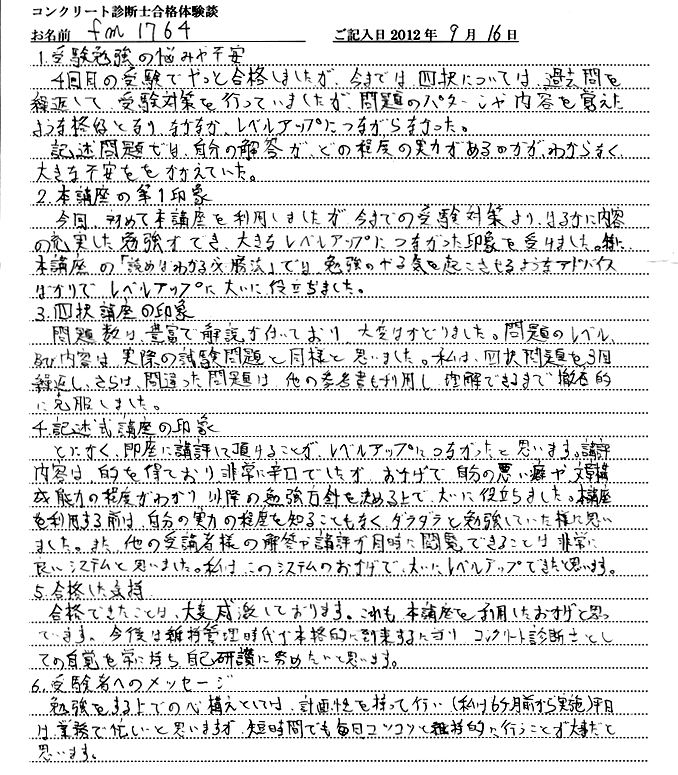 コンクリート診断士合格体験談
お名前 fm1764 ご記入日2012年9月16日
1.受験勉強の悩みや不安
4回目の受験でやっと合格しましたが、今までは四択については、過去問を
繰返して、受験対策を行っていましたが、問題のパターンや内容を覚えた
ような格好となり、なかなか、レベルアップにつながらなかった。
記述問題では、自分の解答が、どの程度の実力があるのかが、わからなく、
大きな不安をかかえていた。
2.本講座の第1印象
今回、初めて本講座を利用しましたが今までの受験対策より、はるかに内容
の充実した勉強ができ、大きなレベルアップにつながった印象を受けました。特に
本講座の「読めばわかる必勝法」では、勉強のやる気を起こさせるようなアドバイス
ばかりで、レベルアップに大いに役立ちました。
3.四択講座の印象
問題数は、豊富で解説が付いており、大変はかどりました。問題のレベル、
及び内容は実際の試験問題と同様と思いました。私は、四択問題を3回
繰返し、さらに、間違った問題は、他の参考書も利用し、理解できるまで徹底的
に克服しました。
4.記述式講座の印象
とにかく、即座に講評して頂けることが、レベルアップにつながったと思います。講評
内容は、的を得ており非常に辛口でしたが、おかげで自分の悪い癖や、文章構
成能力の程度がわかり、以降の勉強方針を決める上で、大いに役立ちました。本講座
を利用する前は、自分の実力の程度を知ることもなく、ダラダラと勉強していた様に思い
ました。また、他の受講者様の解答や講評が同時に閲覧できることは、非常に
良いシステムと思いました。私は、このシステムのおかげで、大いにレベルアップできたと思います。
5.合格した気持
合格できたことは、大変感激しております。これも、本講座を利用したおかげと思っ
ています。今後は維持管理時代が本格的に到来するに当り、コンクリート診断士とし
ての自覚を常に持ち、自己研讃に努めたいと思います。
6.受験者へのメッセージ
勉強をする上での心構えとしては、計画性を持って行い(私は6ヶ月前から実施)平日
は業務で忙しいと思いますが、短時間でも毎日コツコツと維持的に行うことが大事だと
思います。